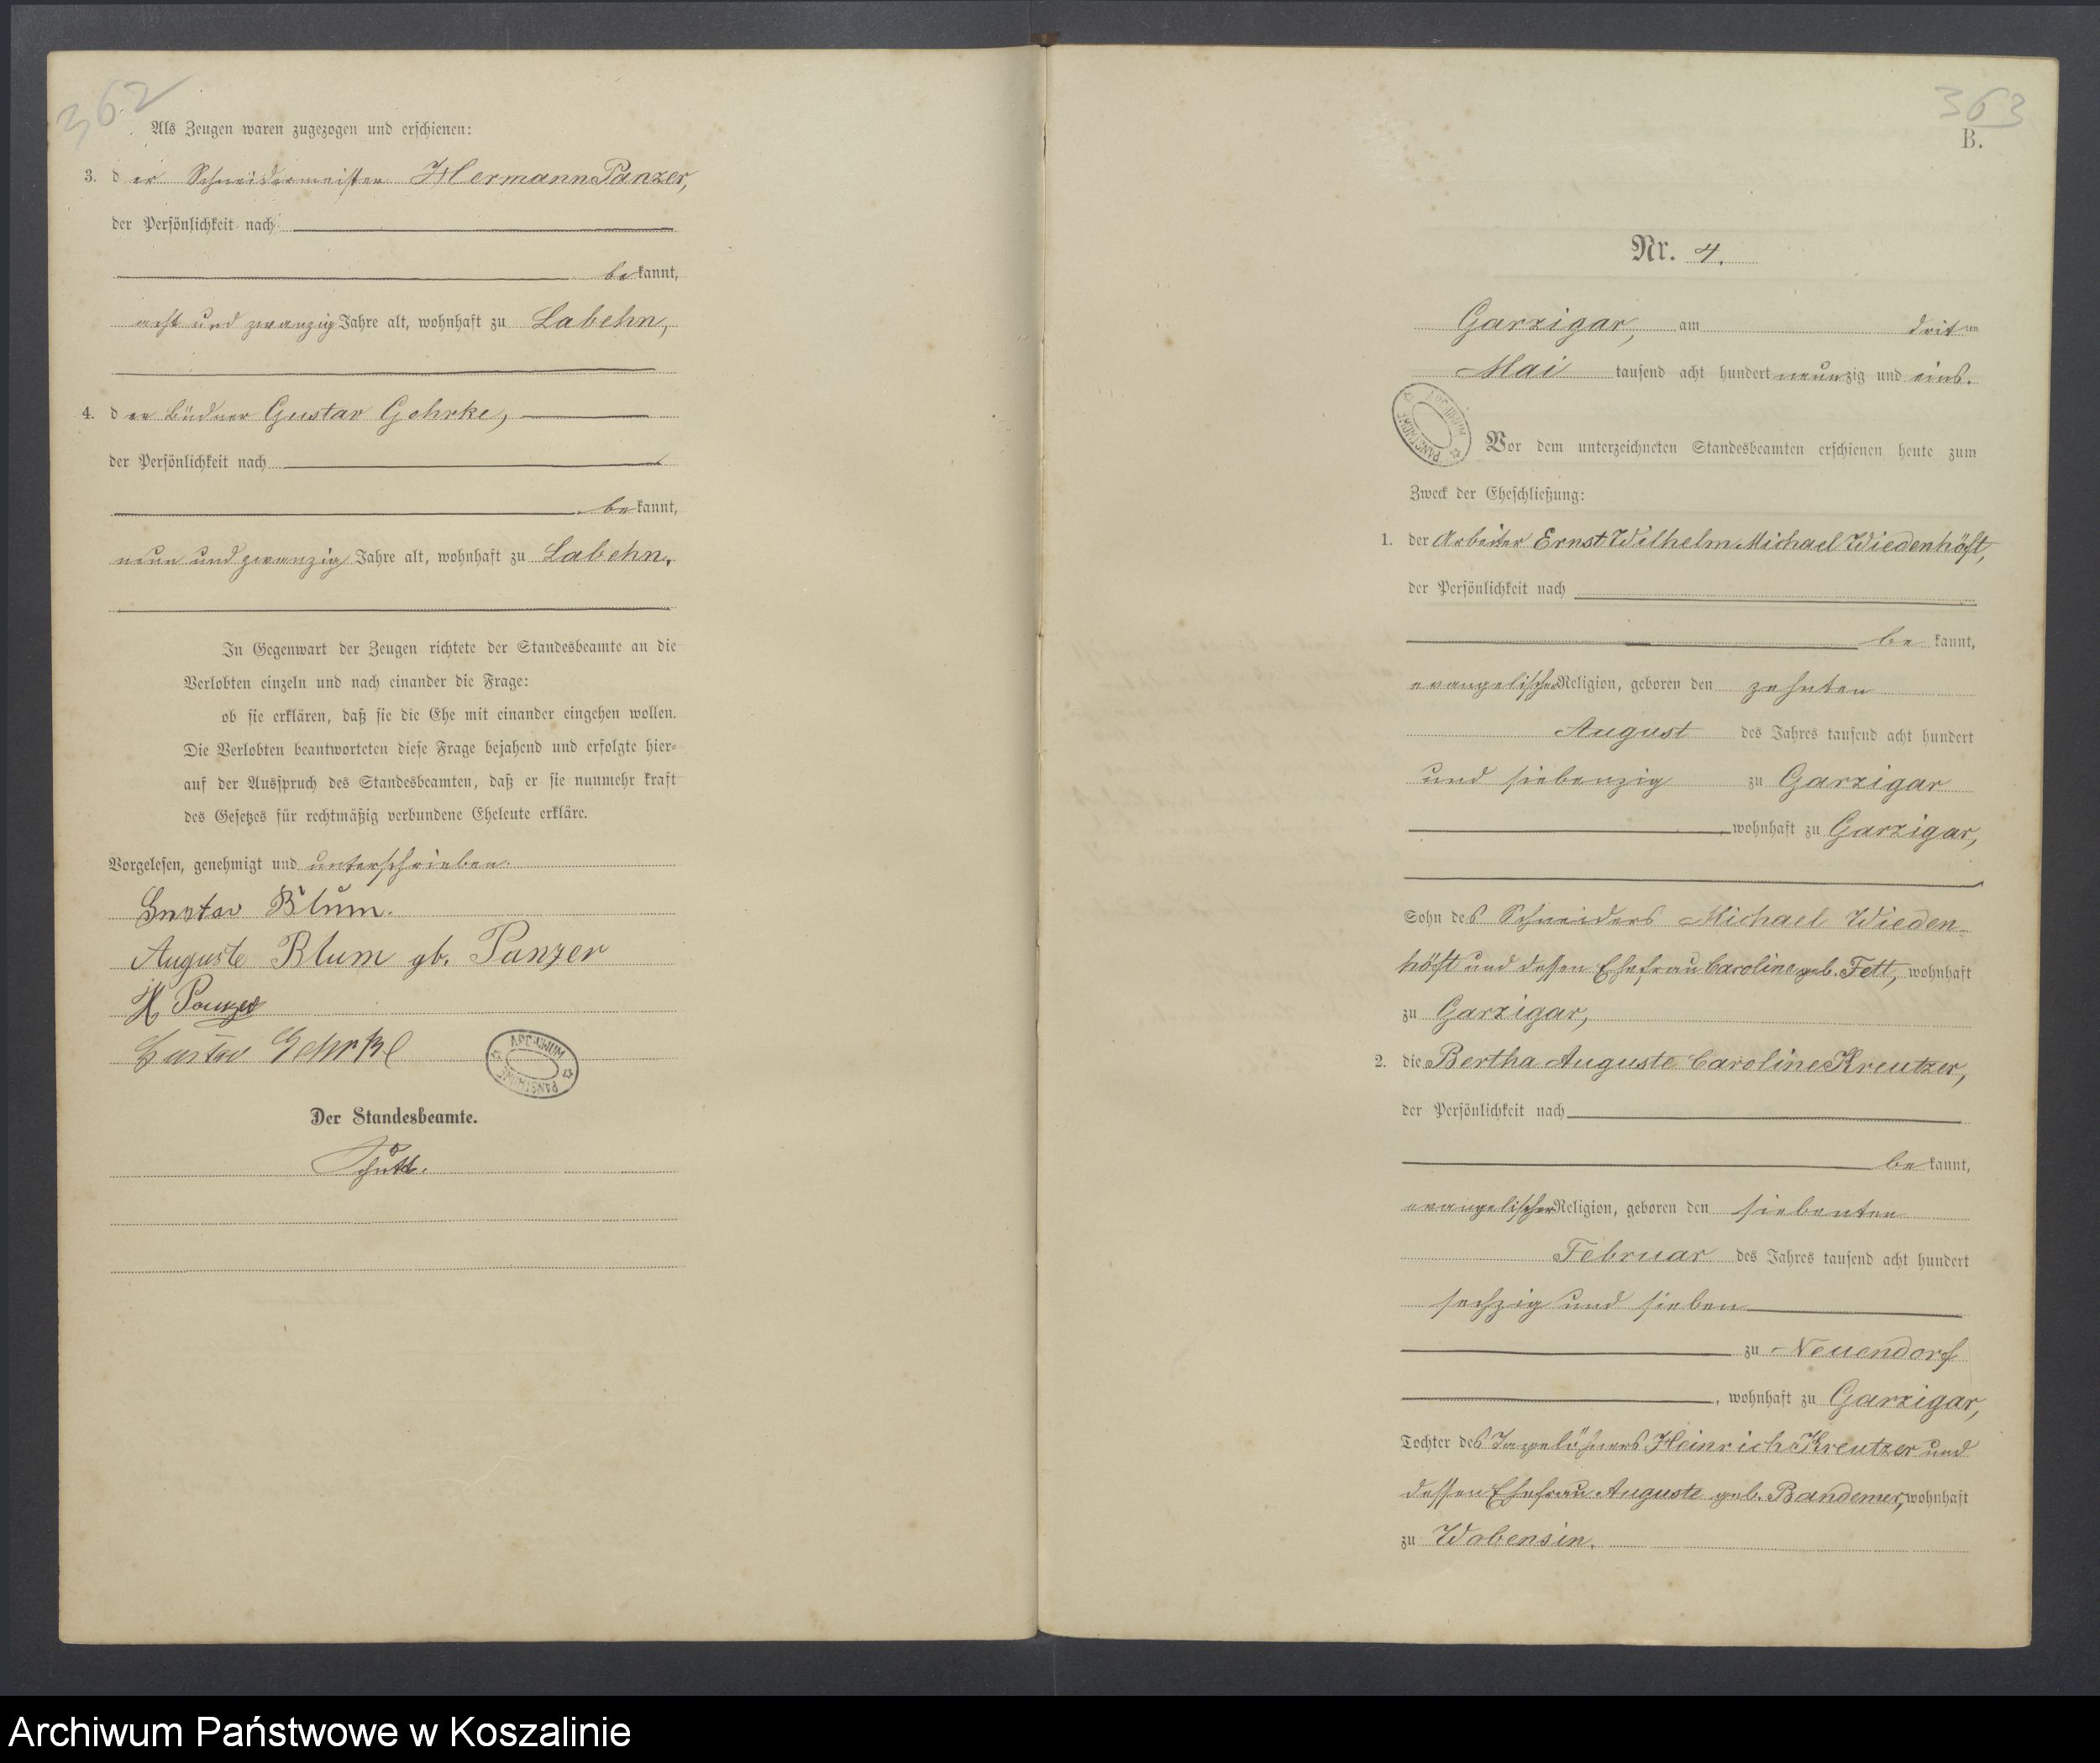 362
Als Zeugen waren zugezogen und erschienen:
3. der Schneidermeister Hermann Panzer,
der Persönlichkeit nach
bekannt,
acht und zwanzig Jahre alt, wohnhaft zu Labehn,
4. der Büdner Gustav Gehrke,
der Persönlichkeit nach
bekannt,
neun und zwanzig Jahre alt, wohnhaft zu Labehn.
In Gegenwart der Zeugen richtete der Standesbeamte an die
Verlobten einzeln und nach einander die Frage:
ob sie erklären, daß sie die Ehe mit einander eingehen wollen.
Die Verlobten beantworteten diese Frage bejahend und erfolgte hier-
auf der Ausspruch des Standesbeamten, daß er sie nunmehr kraft
des Gesetzes für rechtmäßig verbundene Eheleute erkläre.
Vorgelesen, genehmigt und unterschrieben.
Gustav Blum.
Auguste Blum gb. Panzer
H Panzer
Gustav Gehrke
ARCHIWUM PAŃSTWOWE
Der Standesbeamte.
363
B.
Nr. 4.
Garzigar, am dritten
Mai tausend acht hundert neunzig und eins.
ARCHIWUM PAŃSTWOWE
Vor dem unterzeichneten Standesbeamten erschienen heute zum
Zweck der Eheschließung:
1. der Arbeiter Ernst Wilhelm Michael Wiedenhöft,
der Persönlichkeit nach
bekannt,
evangelischer Religion, geboren den zehnten
August des Jahres tausend acht hundert
und siebenzig zu Garzigar
, wohnhaft zu Garzigar,
Sohn des Schneiders Michael Wieden-
höft und dessen Ehefrau Caroline geb. Fett, wohnhaft
zu Garzigar,
2. die Bertha Auguste Caroline Kreutzer,
der Persönlichkeit nach
bekannt,
evangelischer Religion, geboren den siebenten
Februar des Jahres tausend acht hundert
sechzig und sieben
zu Neuendorf
, wohnhaft zu Garzigar,
Tochter des Tagelöhners Heinrich Kreutzer und
dessen Ehefrau Auguste geb. Bandemer, wohnhaft
zu Wobensin.
Archiwum Państwowe w Koszalinie